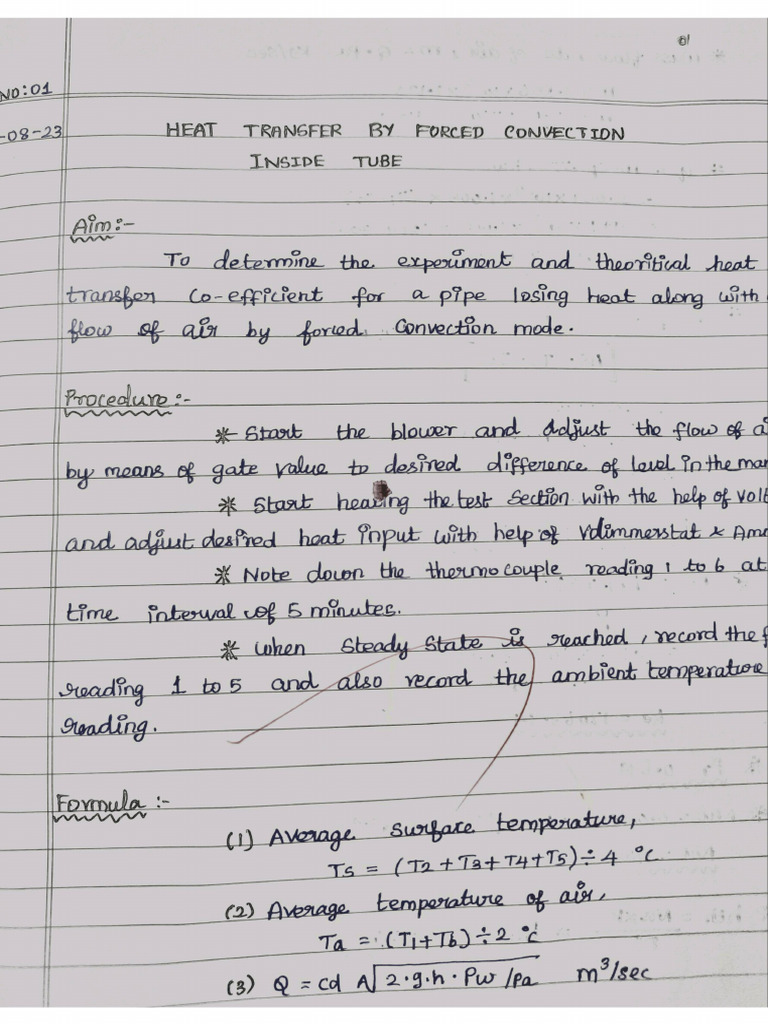 01
NO:01
-08-23
HEAT TRANSFER BY FORCED CONVECTION
INSIDE TUBE
Aim:-
To determine the experiment and theoritical heat
transfer co-efficient for a pipe losing heat along with
flow of air by forced convection mode.
Procedure:-
* Start the blower and adjust the flow of
by means of gate value to desired difference of level in the
* Start heating the test section with the help of
and adjust desired heat input with help of
* Note down the thermocouple reading 1 to 6 at
time interval of 5 minutes.
* When steady state is reached, record the
reading 1 to 5 and also record the ambient temperature
reading.
Formula :-
(1) Average surface temperature,
Ts = (T2 + T3 + T4 + T5) ÷ 4 °C
(2) Average temperature of air,
Ta = (T1 + T6) ÷ 2 °C
(3) Q = cd A√2·g·h·Pw/Pa m³/sec